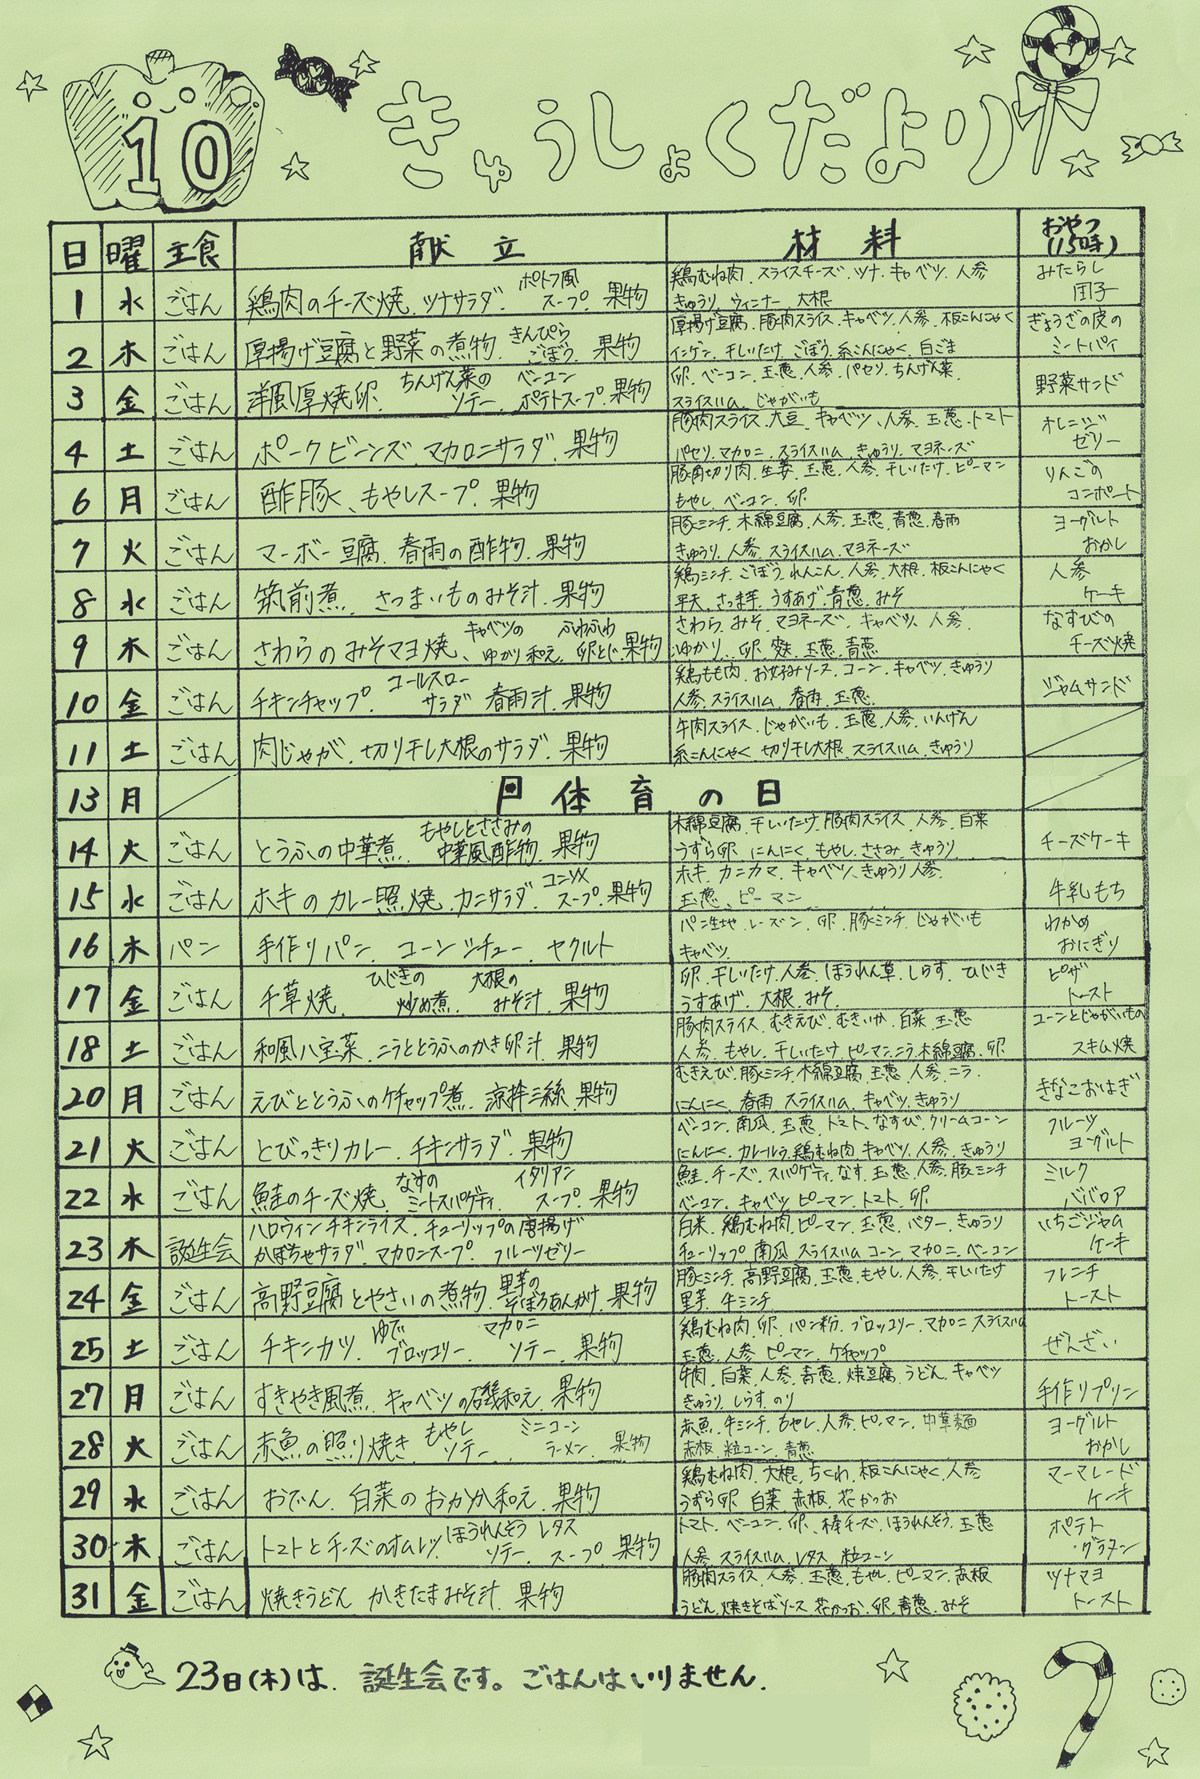 10
きゅうしょくだより
日 曜 主食 献立 材料 おやつ(15時)
1 水 ごはん 鶏肉のチーズ焼、ツナサラダ、ポトフ風スープ、果物 鶏むね肉、スライスチーズ、ツナ、キャベツ、人参 みたらし
きゅうり、ウィンナー、大根 団子
2 木 ごはん 厚揚げ豆腐と野菜の煮物、きんぴらごぼう、果物 厚揚げ豆腐、豚肉スライス、キャベツ、人参、板こんにゃく ぎょうざの皮の
インゲン、干しいたけ、ごぼう、糸こんにゃく、白ごま ミートパイ
3 金 ごはん 洋風厚焼卵、ちんげん菜のソテー、ベーコンポテトスープ、果物 卵、ベーコン、玉葱、人参、パセリ、ちんげん菜 野菜サンド
スライスハム、じゃがいも
4 土 ごはん ポークビーンズ、マカロニサラダ、果物 豚肉スライス、大豆、キャベツ、人参、玉葱、トマト オレンジ
パセリ、マカロニ、スライスハム、きゅうり、マヨネーズ ゼリー
6 月 ごはん 酢豚、もやしスープ、果物 豚角切り肉、生姜、玉葱、人参、干しいたけ、ピーマン りんごの
もやし、ベーコン、卵 コンポート
7 火 ごはん マーボー豆腐、春雨の酢物、果物 豚ミンチ、木綿豆腐、人参、玉葱、青葱、春雨 ヨーグルト
きゅうり、人参、スライスハム、マヨネーズ おかし
8 水 ごはん 筑前煮、さつまいものみそ汁、果物 鶏ミンチ、ごぼう、れんこん、人参、大根、板こんにゃく 人参
平天、さつま芋、うすあげ、青葱、みそ ケーキ
9 木 ごはん さわらのみそマヨ焼、キャベツのゆかり和え、ふわふわ卵とじ、果物 さわら、みそ、マヨネーズ、キャベツ、人参 なすびの
ゆかり、卵、麩、玉葱、青葱 チーズ焼
10 金 ごはん チキンチャップ、コールスローサラダ、春雨汁、果物 鶏もも肉、お好みソース、コーン、キャベツ、きゅうり ジャムサンド
人参、スライスハム、春雨、玉葱
11 土 ごはん 肉じゃが、切り干し大根のサラダ、果物 牛肉スライス、じゃがいも、玉葱、人参、いんげん
糸こんにゃく、切り干し大根、スライスハム、きゅうり
13 月 体育の日
14 火 ごはん とうふの中華煮、もやしとささみの中華風酢物、果物 木綿豆腐、干しいたけ、豚肉スライス、人参、白菜 チーズケーキ
うずら卵、にんにく、もやし、ささみ、きゅうり
15 水 ごはん ホキのカレー照焼、カニサラダ、コンソメスープ、果物 ホキ、カニカマ、キャベツ、きゅうり、人参 牛乳もち
玉葱、ピーマン
16 木 パン 手作りパン、コーンシチュー、ヤクルト パン生地、レーズン、卵、豚ミンチ、じゃがいも わかめ
キャベツ おにぎり
17 金 ごはん 千草焼、ひじきの炒め煮、大根のみそ汁、果物 卵、干しいたけ、人参、ほうれん草、しらす、ひじき ピザ
うすあげ、大根、みそ トースト
18 土 ごはん 和風八宝菜、ニラととうふのかき卵汁、果物 豚肉スライス、むきえび、むきいか、白菜、玉葱 コーンとじゃがいもの
人参、もやし、干しいたけ、ピーマン、ニラ、木綿豆腐、卵 スキム焼
20 月 ごはん えびととうふのケチャップ煮、涼拌三絲、果物 むきえび、豚ミンチ、木綿豆腐、玉葱、人参、ニラ きなこおはぎ
にんにく、春雨、スライスハム、キャベツ、きゅうり
21 火 ごはん とびっきりカレー、チキンサラダ、果物 ベーコン、南瓜、玉葱、トマト、なすび、クリームコーン フルーツ
にんにく、カレールウ、鶏むね肉、キャベツ、人参、きゅうり ヨーグルト
22 水 ごはん 鮭のチーズ焼、なすのミートスパゲティ、イタリアンスープ、果物 鮭、チーズ、スパゲティ、なす、玉葱、人参、豚ミンチ ミルク
ベーコン、キャベツ、ピーマン、トマト、卵 ババロア
23 木 誕生会 ハロウィンチキンライス、チューリップの唐揚げ 白米、鶏むね肉、ピーマン、玉葱、バター、きゅうり いちごジャム
かぼちゃサラダ、マカロニスープ、フルーツゼリー チューリップ、南瓜、スライスハム、コーン、マカロニ、ベーコン ケーキ
24 金 ごはん 高野豆腐とやさいの煮物、里芋のそぼろあんかけ、果物 豚ミンチ、高野豆腐、玉葱、もやし、人参、干しいたけ フレンチ
里芋、牛ミンチ トースト
25 土 ごはん チキンカツ、ゆでブロッコリー、マカロニソテー、果物 鶏むね肉、卵、パン粉、ブロッコリー、マカロニ、スライスハム ぜんざい
玉葱、人参、ピーマン、ケチャップ
27 月 ごはん すきやき風煮、キャベツの磯和え、果物 牛肉、白菜、人参、青葱、焼豆腐、うどん、キャベツ 手作りプリン
きゅうり、しらす、のり
28 火 ごはん 赤魚の照り焼き、もやしソテー、ミニコーンラーメン、果物 赤魚、牛ミンチ、もやし、人参、ピーマン、中華麺 ヨーグルト
赤板、粒コーン、青葱 おかし
29 水 ごはん おでん、白菜のおかか和え、果物 鶏むね肉、大根、ちくわ、板こんにゃく、人参 マーマレード
うずら卵、白菜、赤板、花かつお ケーキ
30 木 ごはん トマトとチーズのオムレツ、ほうれんそうソテー、レタススープ、果物 トマト、ベーコン、卵、棒チーズ、ほうれんそう、玉葱 ポテト
人参、スライスハム、レタス、粒コーン ・グラタン
31 金 ごはん 焼きうどん、かきたまみそ汁、果物 豚肉スライス、人参、玉葱、もやし、ピーマン、赤板 ツナマヨ
うどん、焼きそばソース、花かつお、卵、青葱、みそ トースト
23日(木)は、誕生会です。ごはんはいりません。